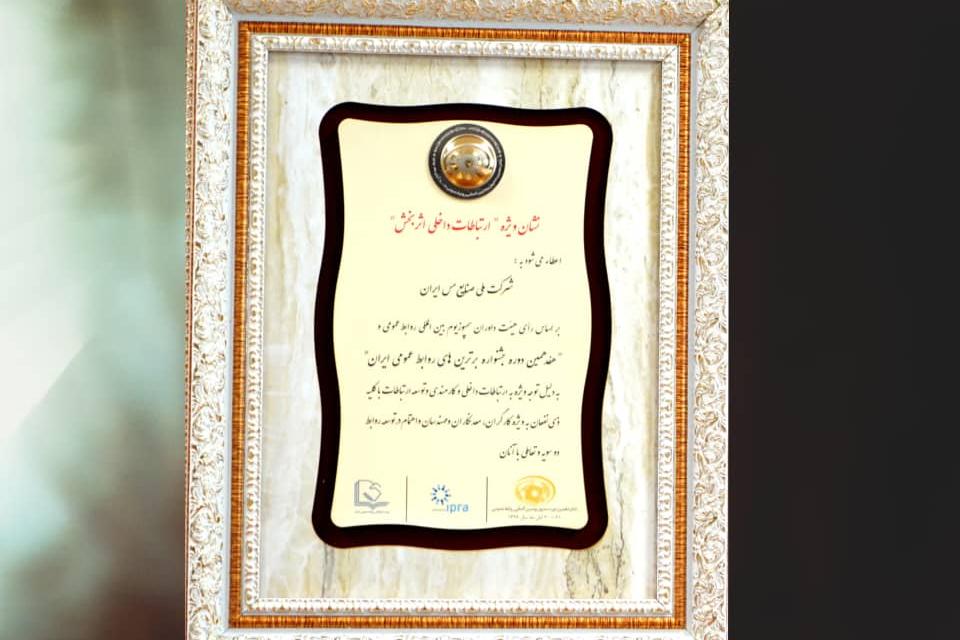 نشان ویژه " ارتباطات داخلی اثربخش "
اعطاء می شود به :
شرکت ملی صنایع مس ایران
بر اساس رای هیئت داوران سمپوزیوم بین المللی روابط عمومی و
" هفدهمین دوره جشنواره برترین های روابط عمومی ایران "
به دلیل توجه ویژه به ارتباطات داخلی و کارمندی و توسعه ارتباطات با کلیه
ذی نفعان به ویژه کارگران، معدنکاران و مهندسان و اهتمام در توسعه روابط
دو سویه و تعاملی با آنان
ipra